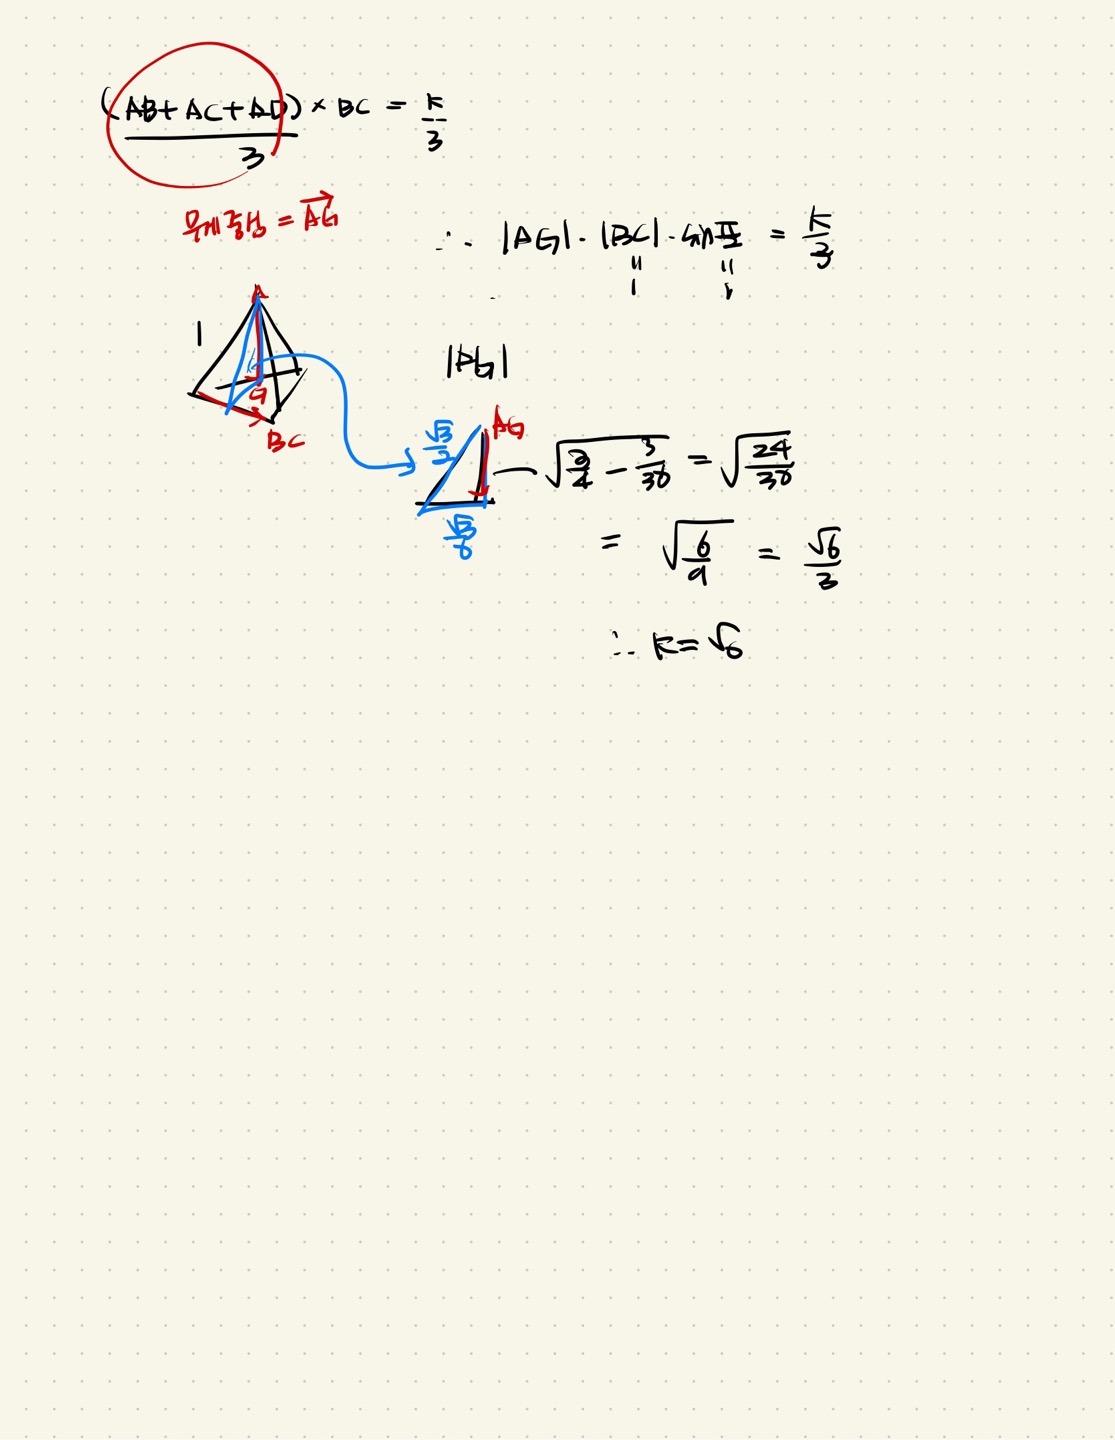 (AB+AC+AD)/3 × BC = K/3
무게중심 = AG
∴ |AG| · |BC| · sin π/2 = K/3
= 1 = 1
A
1
G
BC
|AG|
√3/2 AG
√3/6
√(3/4 - 3/36) = √(24/36)
= √(6/9) = √6/3
∴ K = √6